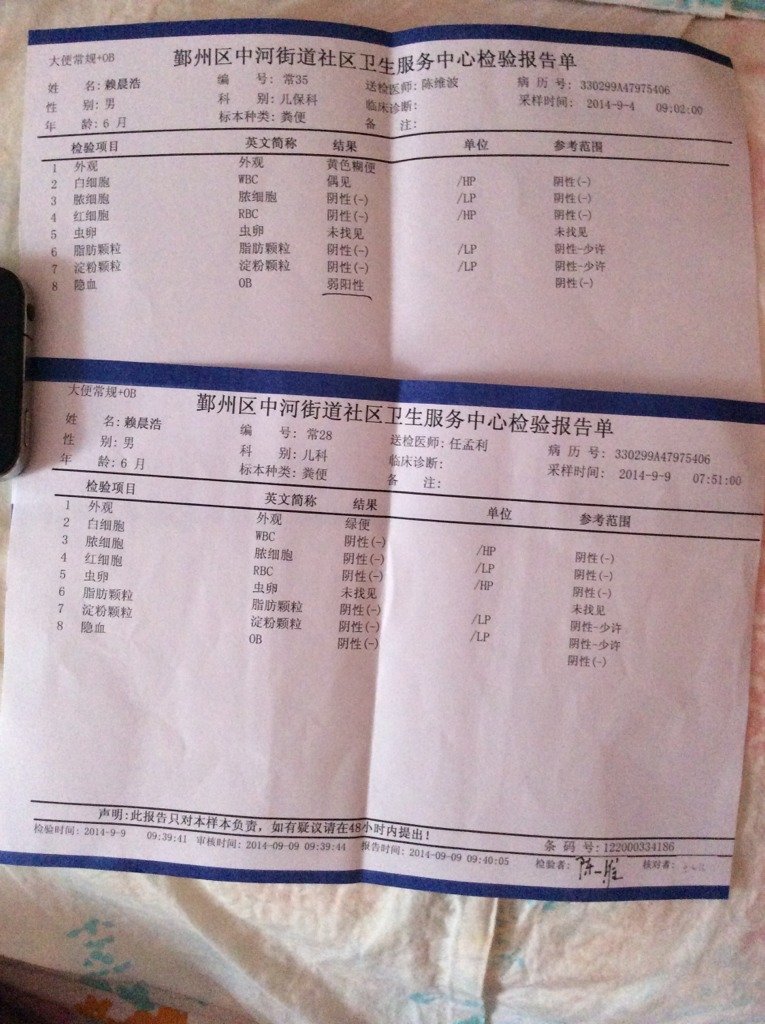 大便常规+OB
鄞州区中河街道社区卫生服务中心检验报告单
姓 名:赖晨浩 编 号:常35 送检医师:陈维波 病 历 号:330299A47975406
性 别:男 科 别:儿保科 临床诊断: 采样时间: 2014-9-4 09:02:00
年 龄:6 月 标本种类:粪便 备 注:
检验项目 英文简称 结果 单位 参考范围
1 外观 外观 黄色糊便
2 白细胞 WBC 偶见 /HP 阴性(-)
3 脓细胞 脓细胞 阴性(-) /LP 阴性(-)
4 红细胞 RBC 阴性(-) /HP 阴性(-)
5 虫卵 虫卵 未找见 未找见
6 脂肪颗粒 脂肪颗粒 阴性(-) /LP 阴性-少许
7 淀粉颗粒 淀粉颗粒 阴性(-) /LP 阴性-少许
8 隐血 OB 弱阳性 阴性(-)
大便常规+OB
鄞州区中河街道社区卫生服务中心检验报告单
姓 名:赖晨浩 编 号:常28 送检医师:任孟利 病 历 号:330299A47975406
性 别:男 科 别:儿科 临床诊断: 采样时间: 2014-9-9 07:51:00
年 龄:6 月 标本种类:粪便 备 注:
检验项目 英文简称 结果 单位 参考范围
1 外观 外观 绿便
2 白细胞 WBC 阴性(-) /HP 阴性(-)
3 脓细胞 脓细胞 阴性(-) /LP 阴性(-)
4 红细胞 RBC 阴性(-) /HP 阴性(-)
5 虫卵 虫卵 未找见 未找见
6 脂肪颗粒 脂肪颗粒 阴性(-) /LP 阴性-少许
7 淀粉颗粒 淀粉颗粒 阴性(-) /LP 阴性-少许
8 隐血 OB 阴性(-) 阴性(-)
声明:此报告只对本样本负责，如有疑议请在48小时内提出!
条 码 号:122000334186
检验时间: 2014-9-9 09:39:41 审核时间: 2014-09-09 09:39:44 报告时间: 2014-09-09 09:40:05 检验者: 核对者: